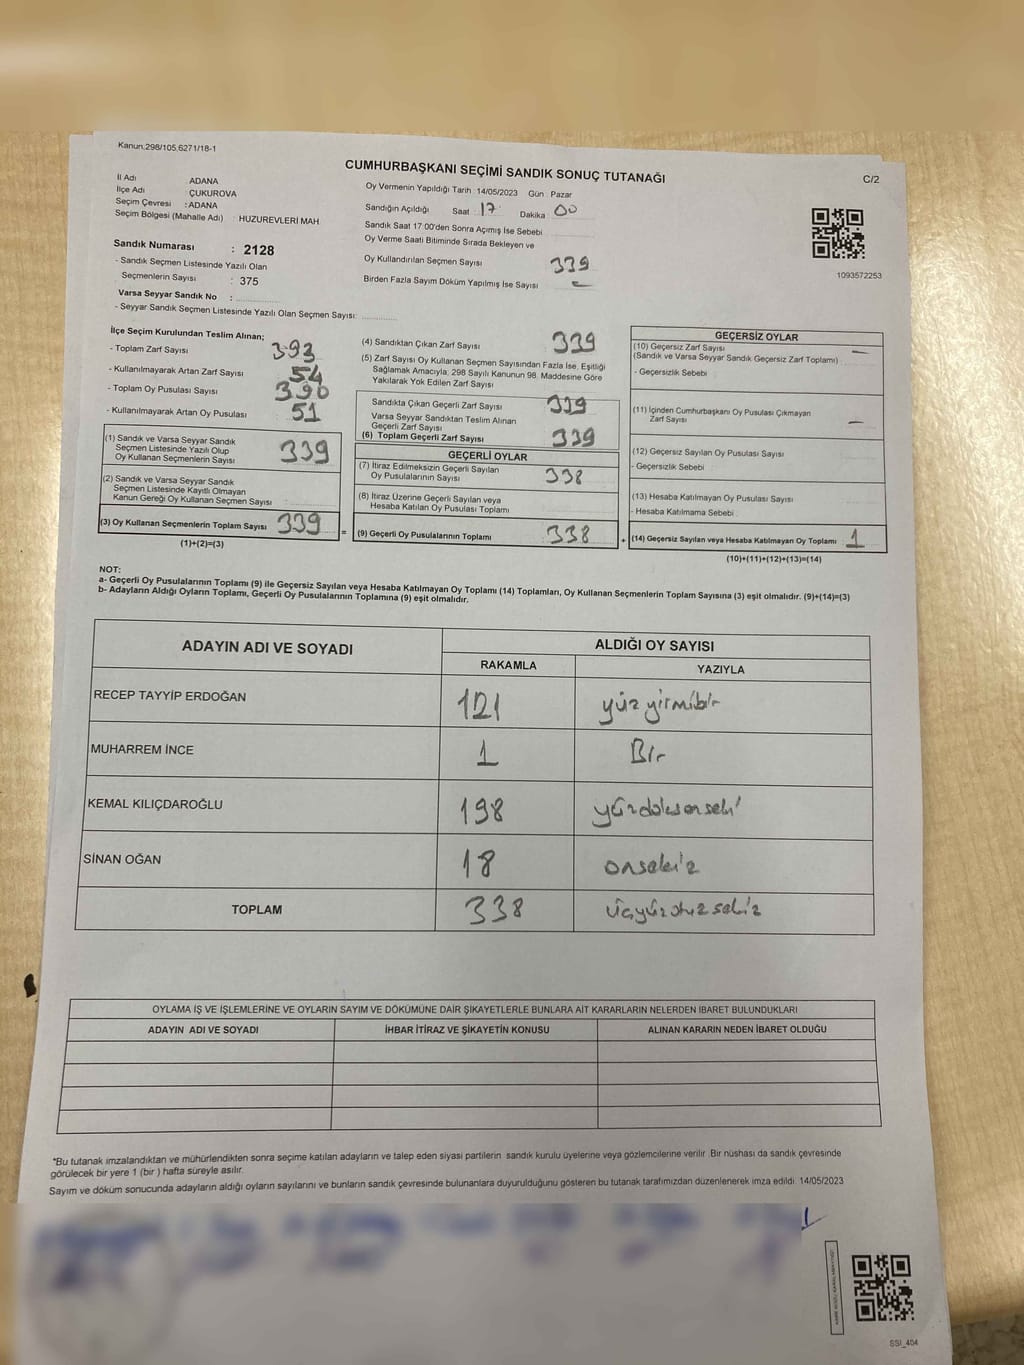 Kanun.298/105,6271/18-1
CUMHURBAŞKANI SEÇİMİ SANDIK SONUÇ TUTANAĞI
C/2
İl Adı : ADANA
İlçe Adı : ÇUKUROVA
Seçim Çevresi : ADANA
Seçim Bölgesi (Mahalle Adı) : HUZUREVLERİ MAH
Sandık Numarası : 2128
- Sandık Seçmen Listesinde Yazılı Olan
Seçmenlerin Sayısı : 375
Varsa Seyyar Sandık No :
- Seyyar Sandık Seçmen Listesinde Yazılı Olan Seçmen Sayısı:
Oy Vermenin Yapıldığı Tarih : 14/05/2023 Gün : Pazar
Sandığın Açıldığı Saat 17 Dakika 00
Sandık Saat 17:00'den Sonra Açımış İse Sebebi
Oy Verme Saati Bitiminde Sırada Bekleyen ve
Oy Kullandırılan Seçmen Sayısı 339
Birden Fazla Sayım Döküm Yapılmış İse Sayısı -
1093572253
İlçe Seçim Kurulundan Teslim Alınan;
- Toplam Zarf Sayısı 393
- Kullanılmayarak Artan Zarf Sayısı 54
- Toplam Oy Pusulası Sayısı 390
- Kullanılmayarak Artan Oy Pusulası 51
(1) Sandık ve Varsa Seyyar Sandık
Seçmen Listesinde Yazılı Olup
Oy Kullanan Seçmenlerin Sayısı 339
(2) Sandık ve Varsa Seyyar Sandık
Seçmen Listesinde Kayıtlı Olmayan
Kanun Gereği Oy Kullanan Seçmen Sayısı
(3) Oy Kullanan Seçmenlerin Toplam Sayısı 339
(1)+(2)=(3)
=
(4) Sandıktan Çıkan Zarf Sayısı 339
(5) Zarf Sayısı Oy Kullanan Seçmen Sayısından Fazla İse, Eşitliği
Sağlamak Amacıyla; 298 Sayılı Kanunun 98. Maddesine Göre
Yakılarak Yok Edilen Zarf Sayısı
Sandıkta Çıkan Geçerli Zarf Sayısı 339
Varsa Seyyar Sandıktan Teslim Alınan
Geçerli Zarf Sayısı
(6) Toplam Geçerli Zarf Sayısı 339
GEÇERLİ OYLAR
(7) İtiraz Edilmeksizin Geçerli Sayılan
Oy Pusulalarının Sayısı 338
(8) İtiraz Üzerine Geçerli Sayılan veya
Hesaba Katılan Oy Pusulası Toplamı
(9) Geçerli Oy Pusulalarının Toplamı 338
+
GEÇERSİZ OYLAR
(10) Geçersiz Zarf Sayısı -
(Sandık ve Varsa Seyyar Sandık Geçersiz Zarf Toplamı)
- Geçersizlik Sebebi
(11) İçinden Cumhurbaşkanı Oy Pusulası Çıkmayan
Zarf Sayısı -
(12) Geçersiz Sayılan Oy Pusulası Sayısı
- Geçersizlik Sebebi
(13) Hesaba Katılmayan Oy Pusulası Sayısı
- Hesaba Katılmama Sebebi
(14) Geçersiz Sayılan veya Hesaba Katılmayan Oy Toplamı 1
(10)+(11)+(12)+(13)=(14)
NOT:
a- Geçerli Oy Pusulalarının Toplamı (9) ile Geçersiz Sayılan veya Hesaba Katılmayan Oy Toplamı (14) Toplamları, Oy Kullanan Seçmenlerin Toplam Sayısına (3) eşit olmalıdır. (9)+(14)=(3)
b- Adayların Aldığı Oyların Toplamı, Geçerli Oy Pusulalarının Toplamına (9) eşit olmalıdır.
ADAYIN ADI VE SOYADI ALDIĞI OY SAYISI
RAKAMLA YAZIYLA
RECEP TAYYİP ERDOĞAN 121 yüzyirmibir
MUHARREM İNCE 1 Bir
KEMAL KILIÇDAROĞLU 198 yüzdoksansekiz
SİNAN OĞAN 18 onsekiz
TOPLAM 338 üçyüzotuzsekiz
OYLAMA İŞ VE İŞLEMLERİNE VE OYLARIN SAYIM VE DÖKÜMÜNE DAİR ŞİKAYETLERLE BUNLARA AİT KARARLARIN NELERDEN İBARET BULUNDUKLARI
ADAYIN ADI VE SOYADI İHBAR İTİRAZ VE ŞİKAYETİN KONUSU ALINAN KARARIN NEDEN İBARET OLDUĞU
*Bu tutanak imzalandıktan ve mühürlendikten sonra seçime katılan adayların ve talep eden siyasi partilerin sandık kurulu üyelerine veya gözlemcilerine verilir. Bir nüshası da sandık çevresinde
görülecek bir yere 1 (bir ) hafta süreyle asılır.
Sayım ve döküm sonucunda adayların aldığı oyların sayılarını ve bunların sandık çevresinde bulunanlara duyurulduğunu gösteren bu tutanak tarafımızdan düzenlenerek imza edildi. 14/05/2023
SSI_404